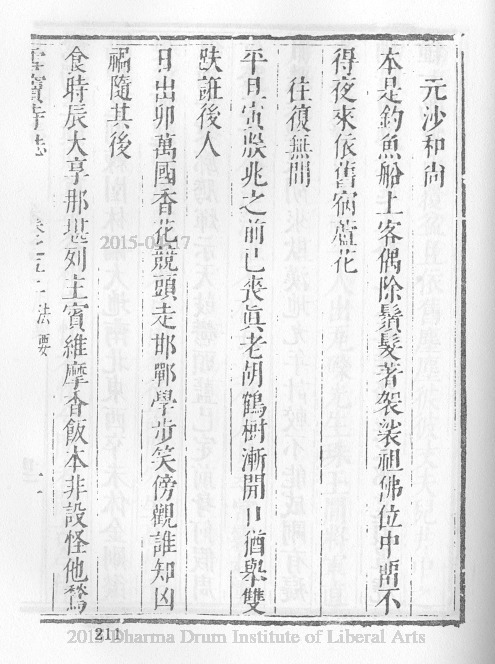 元沙和尚
本是釣魚船上客偶除鬚髮著袈裟祖佛位中畱不
得夜來依舊宿蘆花
往復無間
平旦寅朕兆之前已喪眞老胡鶴樹漸開口猶舉雙
趺誑後人
日出卯萬國香花競頭走邯鄲學步笑傍觀誰知凶
禍隨其後
食時辰大享那堪列主賓維摩香飯本非設怪他鶖
雪竇寺志 卷之五上 法要
2015-04-17
211
Dharma Drum Institute of Liberal Arts